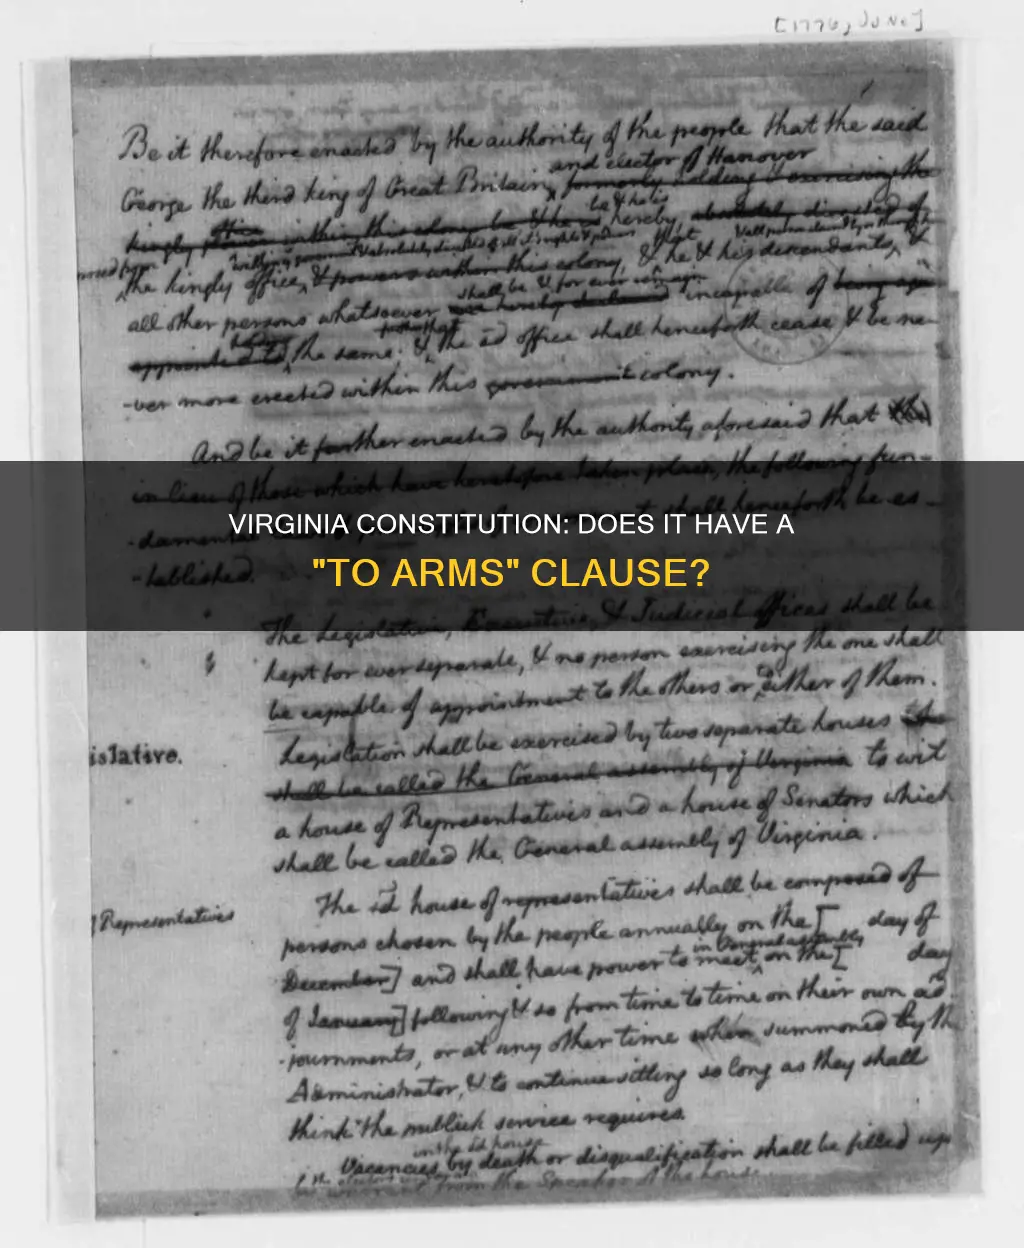 [1776, June]
Be it therefore enacted by the authority of the people that the said
and elector of Hanover
George the third king of Great Britain, formerly holding & exercising the
be & he is hereby
kingly within this colony
the kingly office, & powers within this colony, & he & his descendants, &
shall be & for ever
all other persons whatsoever hereby declared incapable of being again
appointed to the same; & the sd office shall henceforth cease & be ne-
-ver more erected within this government colony.
And be it further enacted by the authority aforesaid that
in lieu of those which have heretofore taken place, the following fun-
shall henceforth be es-
-tablished.
VIRGINIA CONSTITUTION: DOES IT HAVE A
"TO ARMS" CLAUSE?
The Legislative, Executive, & Judicial offices shall be
kept for ever separate, & no person exercising the one shall
be capable of appointment to the others or to either of them.
islative.
Legislation shall be exercised by two separate houses
shall be called the General assembly of Virginia to wit
a house of Representatives and a house of Senators which
shall be called the General assembly of Virginia.
Representatives
The sd house of representatives shall be composed of
persons chosen by the people annually on the [ day of
in General assembly
December] and shall have power to meet on the [ day
of January] following & so from time to time on their own ad-
-journments, or at any other time when summoned by the
Administrator, & to continue sitting so long as they shall
think the publick service requires.
in the sd house
Vacancies by death or disqualification shall be filled up
from the Speaker of the house